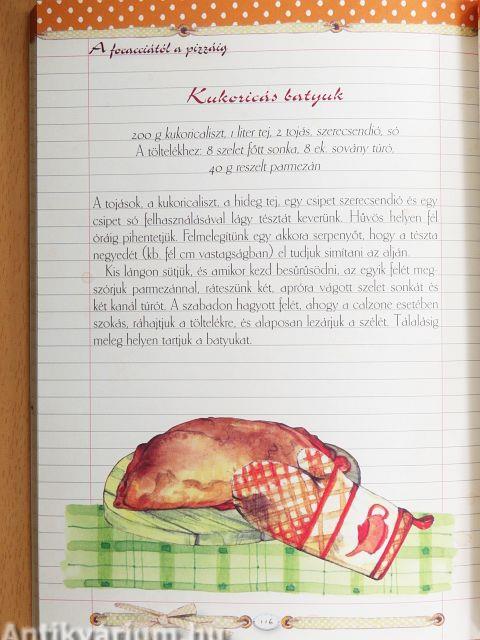 A focacciától a pizzáig
Kukoricás batyuk
200 g kukoricaliszt, 1 liter tej, 2 tojás, szerecsendió, só
A töltelékhez: 8 szelet főtt sonka, 8 ek. sovány túró,
40 g reszelt parmezán
A tojások, a kukoricaliszt, a hideg tej, egy csipet szerecsendió és egy
csipet só felhasználásával lágy tésztát keverünk. Hűvös helyen fél
óráig pihentetjük. Felmelegítünk egy akkora serpenyőt, hogy a tészta
negyedét (kb. fél cm vastagságban) el tudjuk simítani az alján.
Kis lángon sütjük, és amikor kezd besűrűsödni, az egyik felét meg-
szórjuk parmezánnal, ráteszünk két, apróra vágott szelet sonkát és
két kanál túrót. A szabadon hagyott felét, ahogy a calzone esetében
szokás, ráhajtjuk a töltelékre, és alaposan lezárjuk a szélét. Tálalásig
meleg helyen tartjuk a batyukat.
116
Antikvarium.hu